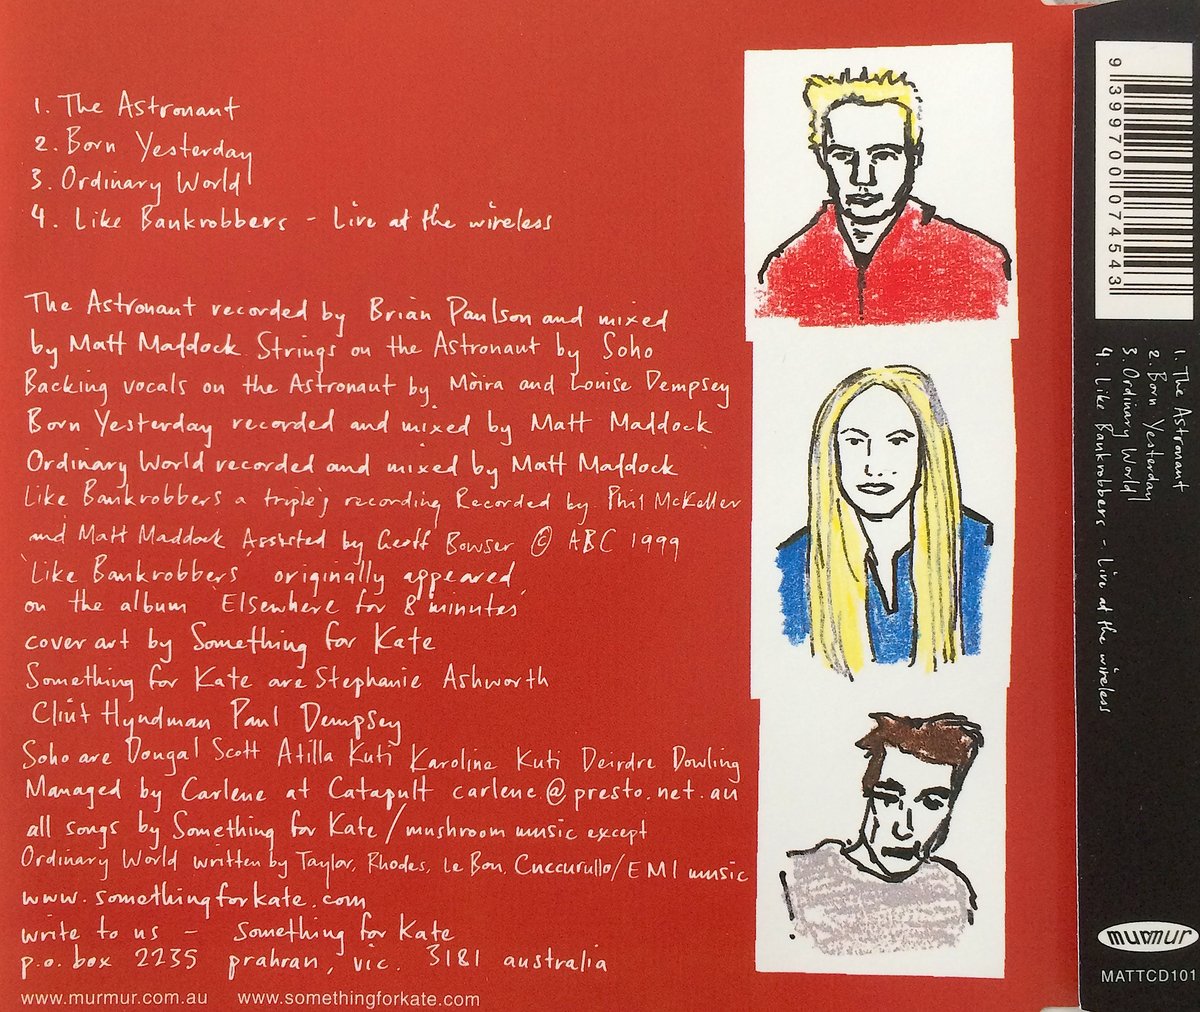 1. The Astronaut
2. Born Yesterday
3. Ordinary World
4. Like Bankrobbers - Live at the wireless
The Astronaut recorded by Brian Paulson and mixed
by Matt Maddock Strings on the Astronaut by Soho
Backing vocals on the Astronaut by Moira and Louise Dempsey
Born Yesterday recorded and mixed by Matt Maddock
Ordinary World recorded and mixed by Matt Maddock
Like Bankrobbers a triple j recording Recorded by Phil McKeller
and Matt Maddock Assisted by Geoff Bowser © ABC 1999
'Like Bankrobbers' originally appeared
on the album 'Elsewhere for 8 minutes'
cover art by Something for Kate
Something for Kate are Stephanie Ashworth
Clint Hyndman Paul Dempsey
Soho are Dougal Scott Atilla Kuti Karoline Kuti Deirdre Dowling
Managed by Carlene at Catapult carlene@presto.net.au
all songs by Something for Kate / mushroom music except
Ordinary World written by Taylor, Rhodes, Le Bon, Cuccurullo/EMI music
www.somethingforkate.com
write to us - Something for Kate
p.o. box 2235 prahran, vic. 3181 australia
www.murmur.com.au www.somethingforkate.com
9 399700 074543
1. The Astronaut
2. Born Yesterday
3. Ordinary World
4. Like Bankrobbers - Live at the wireless
murmur
MATTCD101